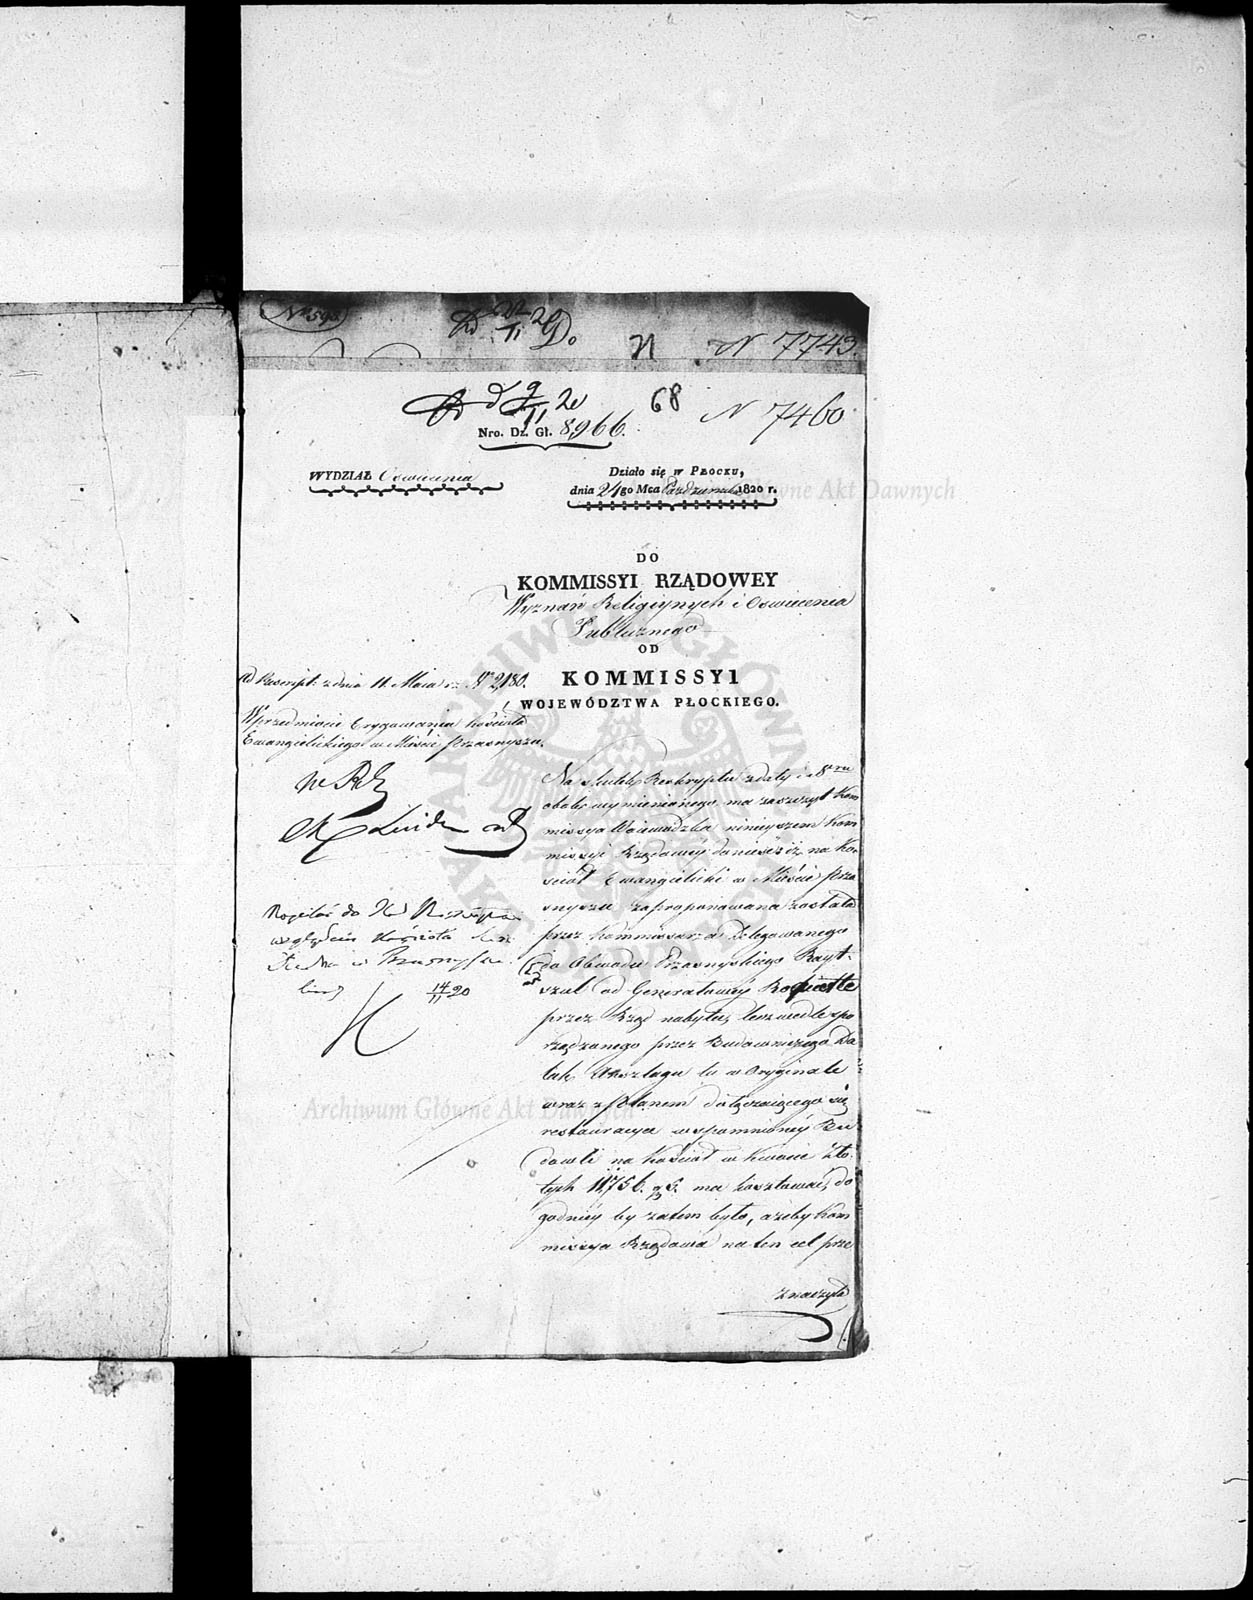 No 598
N 7743.
68
N 7460
Nro. Dz. Gł. 8,966.
WYDZIAŁ Oswiecenia
Działo się w PŁOCKU,
dnia 24go Mca Pazdziernika 1820 r.
DO
KOMMISSYI RZĄDOWEY
Wyznań Religiynych i Oswiecenia
Publicznego
OD
KOMMISSYI
WOJEWÓDZTWA PŁOCKIEGO.
Ad Rescript: z dnia 11. Maia r: Nro 2,180.
W przedmiocie Erygowania Kościoła
Ewangielickiego w Mieście Przasnyszu.
Na skutek Reskryptu z daty i Nru
obok wymienionego, ma zaszczyt Kom
missya Woiewodzka ninieyszem Kom
missyi Rządowéy donieść iż na Ko-
ściół Ewangielicki w Mieście Prza
snyszu zaproponowana została
przez Kommissarza Delegowanego
do Obwodu Przasnyskiego Rayt-
szul od Generałowéy
przez Rząd nabyta, lecz wedle spo
rządzonego przez Budowniczego
Anszlagu tu w Oryginale
wraz z Planem dołączaiącego się
restauracya wspomnionéy Bu
dowli na Kościół w kwocie Zło
tych 11,756. g 5. ma kosztować, do
godniéy by zatem było, ażeby Kom
missya Rządowa na ten cel prze
znaczyła
w Przasnyszu
14/11 20
Archiwum Główne Akt Dawnych
Archiwum Główne Akt Dawnych
ARCHIWUM GŁÓWNE AKT DAWNYCH